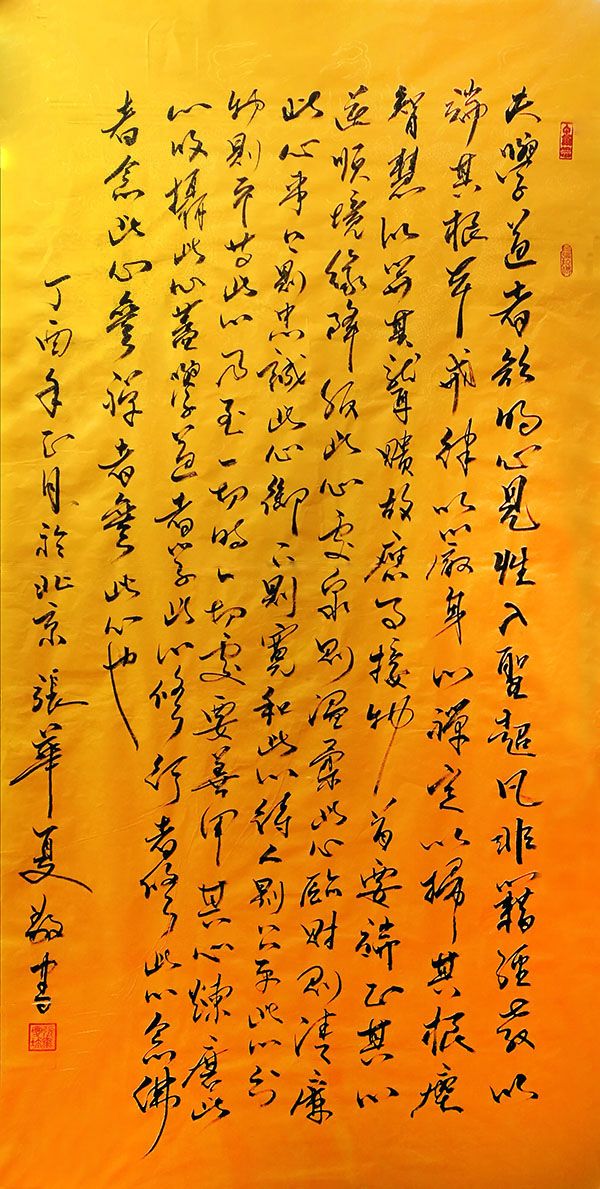 夫學道者欲明心見性入聖超凡非藉經教以
端其根本戒律以嚴身心禪定以掃其根塵
智慧以其聾瞶故應事接物首要端正其心
逆順境緣降伏此心處眾則溫柔此心臨財則清廉
此心事上則忠誠此心御下則寬和此心待人則公平此心分
物則平等此心乃至一切時一切處要善用其心煉磨此
心收攝此心蓋學道者學此心修行者修此心念佛
者念此心參禪者參此心也
丁酉年正月於北京張華夏敬書